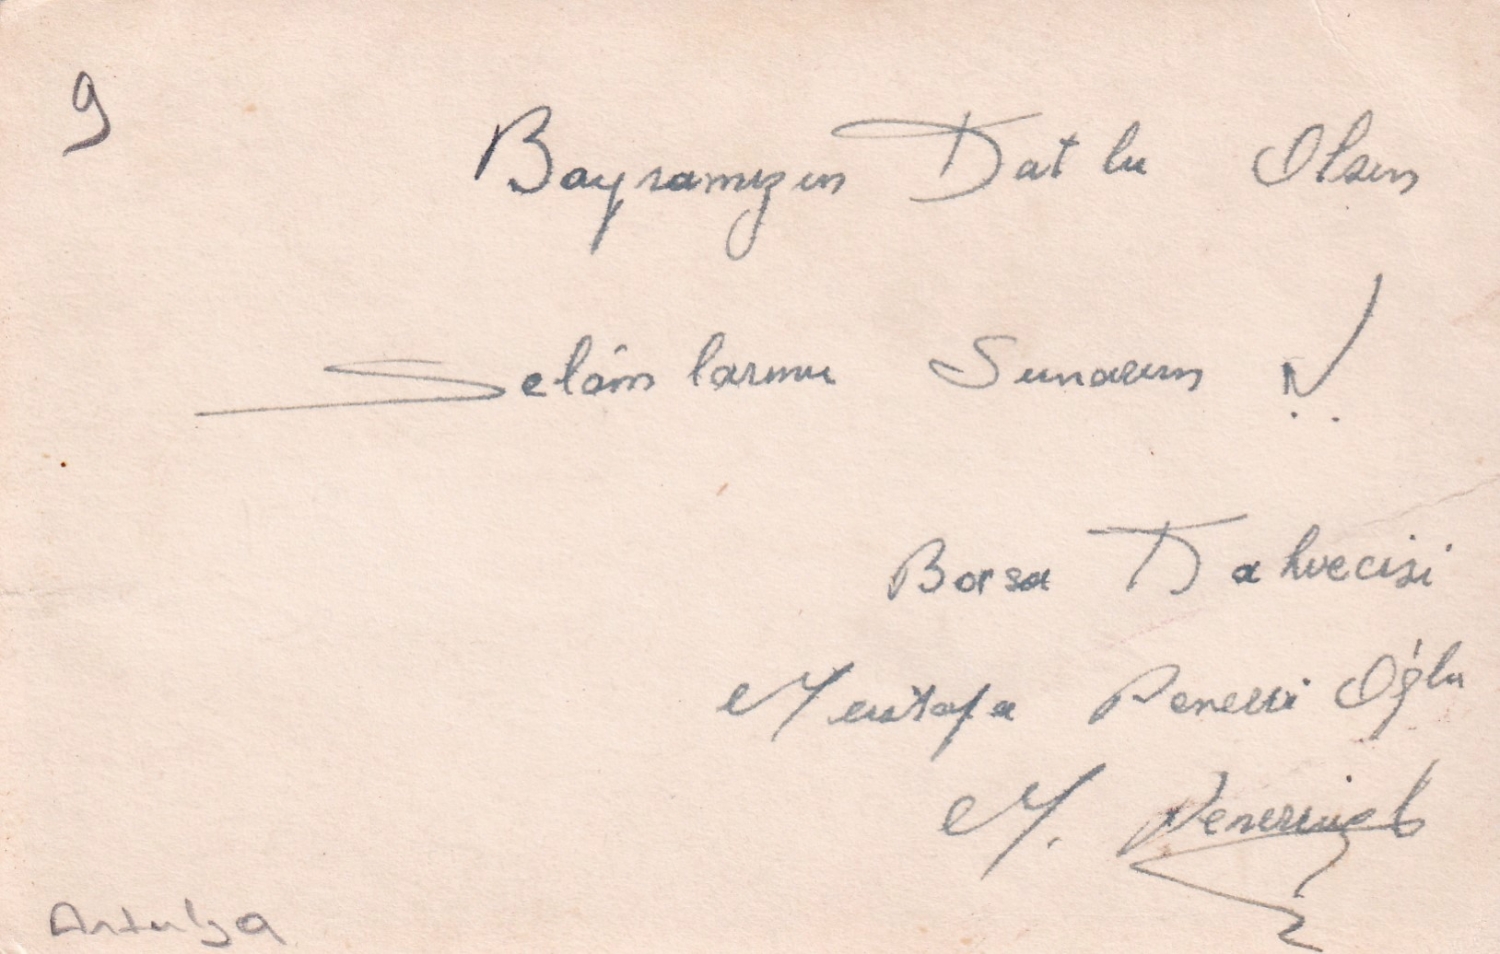 9
Bayramızın Datlu Olsun
Selâmlarımı Sunarım
Borsa Kahvecisi
Mustafa Oğlu
M.
Antalya